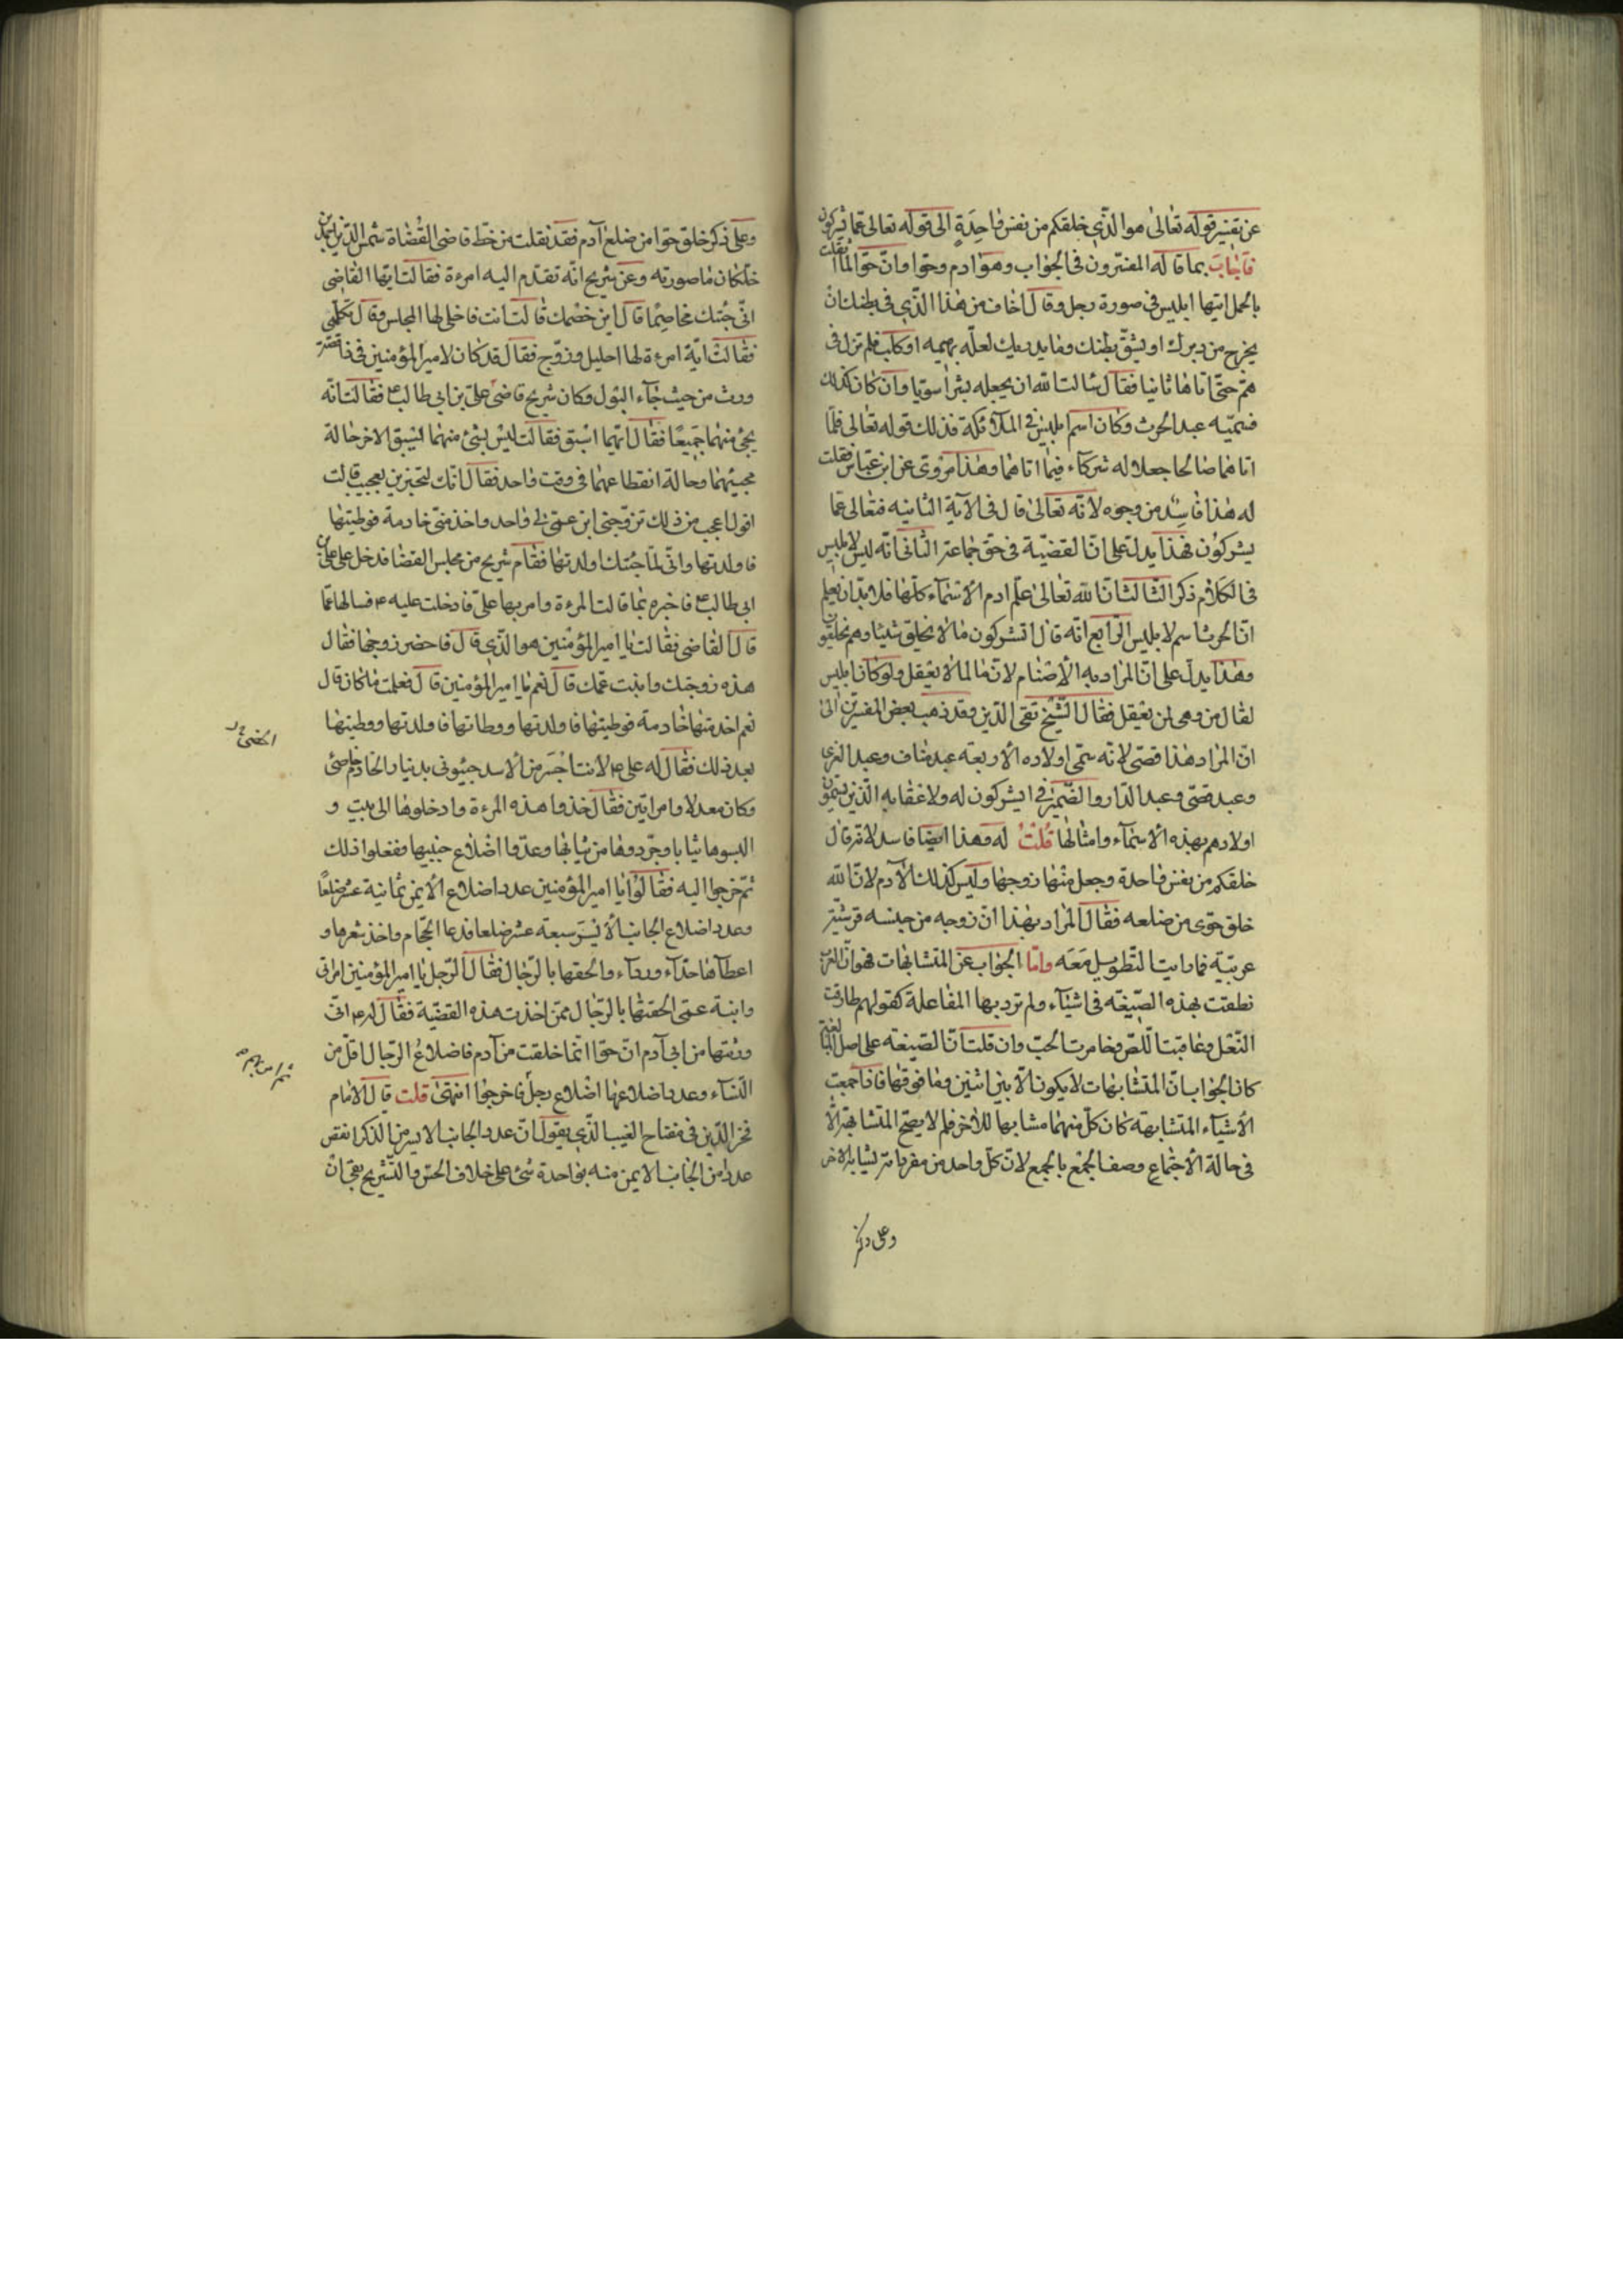 عن تفسير قوله تعالى هو الذي خلقكم من نفس واحدة الى قوله تعالى عما يشركون
فاجاب بما قاله المفسرون في الجواب وهو ادم وحوا وان حوا لما اثقلت
بالحمل اتيها ابليس في صورة رجل وقال اخاف من هذا الذي في بطنك ان
يخرج من دبرك او يشق بطنك وما يدريك لعله بهيمه او كلب فلم تزل في
هم حتى اتاها ثانيا فقال سالت الله ان يجعله بشرا سويا وان كان كذلك
فسميه عبد الحرث وكان اسم ابليس في الملائكة فذلك قوله تعالى فلما
اتاهما صالحا جعلا له شركاء فيما اتاهما وهذا مروى عن ابن عباس فقلت
له هذا فاسد من وجوه لانه تعالى قال في الآية الثانيه فتعالى عما
يشركون فهذا يدل على ان القضية في حق جماعة الثاني انه ليس لابليس
في الكلام ذكر الثالث ان الله تعالى علم ادم الأسماء كلها فلابد ان يعلم
ان الحرث اسم لابليس الرابع انه قال اتشركون ما لا يخلق شيئا وهم يخلقون
وهذا يدل على ان المراد به الأصنام لان ما لما لا يعقل ولو كان ابليس
لقال من وهى لمن يعقل فقال الشيخ تقى الدين وقد ذهب بعض المفسرين الى
ان المراد هذا قصى لانه سمى اولاده الأربعه عبد مناف وعبد العزى
وعبد قصى وعبد الدار والضمير في ايشركون له ولاعقابه الذين يسمون
اولادهم بهذه الأسماء وامثالها قلت له وهذا ايضا فاسد لانه قال
خلقكم من نفس واحدة وجعل منها زوجها وليس كذلك الا آدم لان الله
خلق حوى من ضلعه فقال المراد بهذا ان زوجه من جنسه قرشية
عربية فما رايت التطويل معه واما الجواب عن المتشابهات فهو ان العرب
نطقت بهذه الصيغه في اشياء ولم ترد بها المفاعلة كقولهم طارقت
النعل وعاقبت اللص وخامرت الحب وان قلت ان الصيغه على اصل بابها
كان الجواب ان المتشابهات لا يكون الا بين اثنين وما فوقها فاذا جمعت
الأشياء المتشابهة كان كل منهما مشابها للآخر فلم لا يصح المتشابهة الا
في حالة الأجتماع وصف الجمع بالجمع لان كل واحد من مفرداته يشابه الاخر
وعلى ذكر
وعلى ذكر خلق حوا من ضلع آدم فقد نقلت من خط قاضى القضاة شمس الدين احمد بن
خلكان ما صورته وعن شريح انه تقدم اليه امرءة فقالت ايها القاضى
انى جئتك مخاصما قال اين خصمك قالت انت فاخلى لها المجلس وقال تكلمى
فقالت اية امرءة لها احليل وفرج فقال قد كان لامير المؤمنين في ذا قصة
ورث من حيث جاء البول وكان شريح قاضى على بن ابى طالب ع فقالت انه
يجئ منهما جميعا فقال ايهما اسبق فقالت ليس بشئ منهما يسبق الاخر حالة
مجيئهما وحالة انقطاعهما في وقت واحد فقال انك لتخبرين بعجيب قالت
اقول اعجب من ذلك تزوجنى ابن عمى لى واحد واخذ منى خادمة فوطيتها
فاولدتها وانى لما جئتك اولدتها فقام شريح من مجلس القضا فدخل على على بن
ابى طالب ع فاخبره بما قالت المرءة وامر بها على فادخلت عليه ع فسالها عما
قال القاضى فقالت يا امير المؤمنين هو الذي قال فاحضر زوجها فقال
هذه زوجتك وابنت عمك قال نعم يا امير المؤمنين قال فعلمت ما كان قال
نعم اخدمتها خادمة فوطيتها فاولدتها ووطاتها فاولدتها ووطيتها
بعد ذلك فقال له على ع لانت اجسر من الأسد جيئونى بدينار الخادم خاصى
وكان معدلا وامراتين فقال خذوا هذه المرءة وادخلوها الى بيت و
البسوها ثيابا وجردوها من ثيابها وعدوا اضلاع جنبيها ففعلوا ذلك
ثم خرجوا اليه فقالوا يا امير المؤمنين عدد اضلاع الأيمن ثمانية عشر ضلعا
وعدد اضلاع الجانب الأيسر سبعة عشر ضلعا فدعا الحجام واخذ شعرها و
اعطاها حذاء ورداء والحقها بالرجال فقال الرجل يا امير المؤمنين امراتى
وابنة عمى الحقتها بالرجال ممن اخذت هذه القضية فقال له ع انى
ورثتها من ابى آدم ان حوا انما خلقت من آدم فاضلاع الرجال اقل من
النساء وعدد اضلاعها اضلاع رجل فاخرجوا انتهى قلت قال الامام
فخر الدين في مفتاح الغيب الذي يقول ان عدد الجانب الايسر من الذكر انقص
عددا من الجانب الايمن منه بواحدة شئ على خلاف الحس والتشريح بقى ان